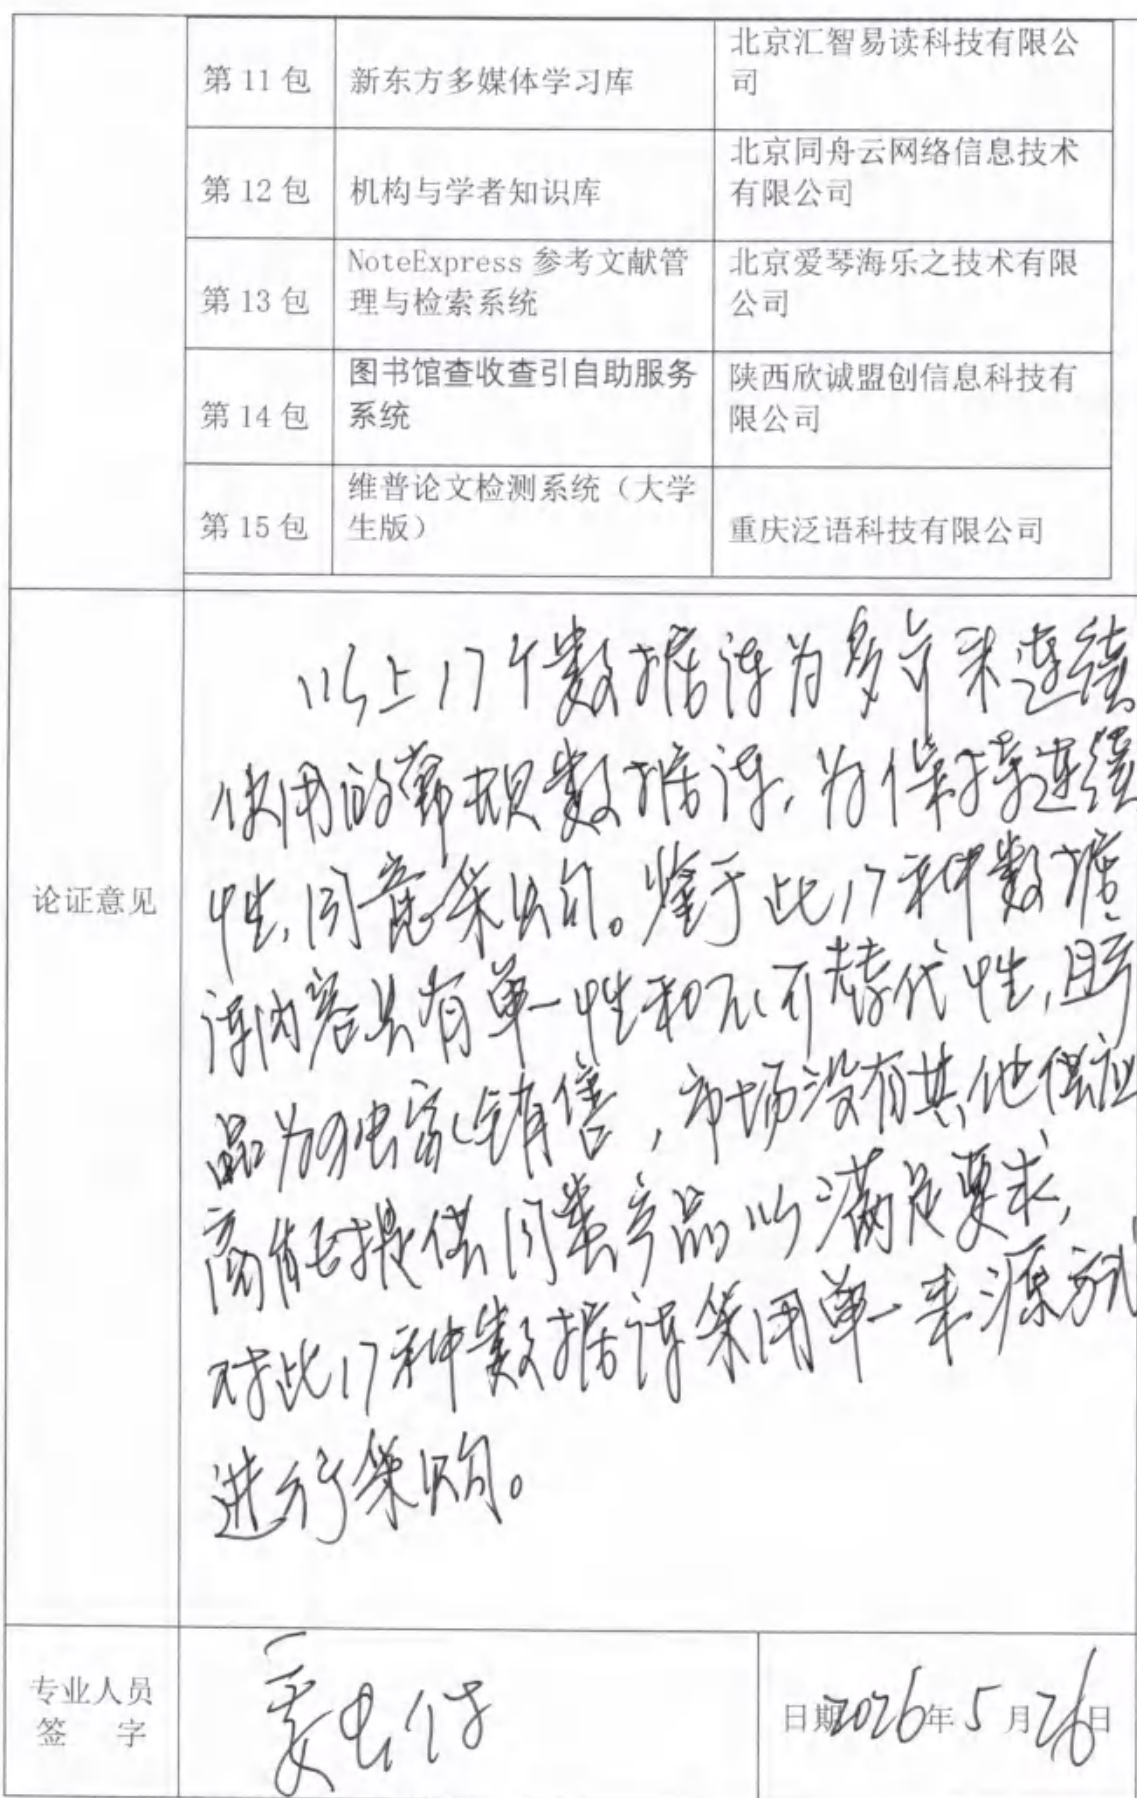 第 11 包
新东方多媒体学习库
北京汇智易读科技有限公
司
第 12 包
机构与学者知识库
北京同舟云网络信息技术
有限公司
第 13 包
NoteExpress 参考文献管
理与检索系统
北京爱琴海乐之技术有限
公司
第 14 包
图书馆查收查引自助服务
系统
陕西欣诚盟创信息科技有
限公司
第 15 包
维普论文检测系统（大学
生版）
重庆泛语科技有限公司
论证意见
以上17个数据库为多年来连续
使用的常规数据库,为保持连续
性,同意采购。鉴于此17种数据
库内容具有单一性和不可替代性,且产
品为独家销售,市场没有其他供应
商能提供同类产品以满足要求,
对此17种数据库采用单一来源方式
进行采购。
专业人员
签 字
日期2026年5月26日